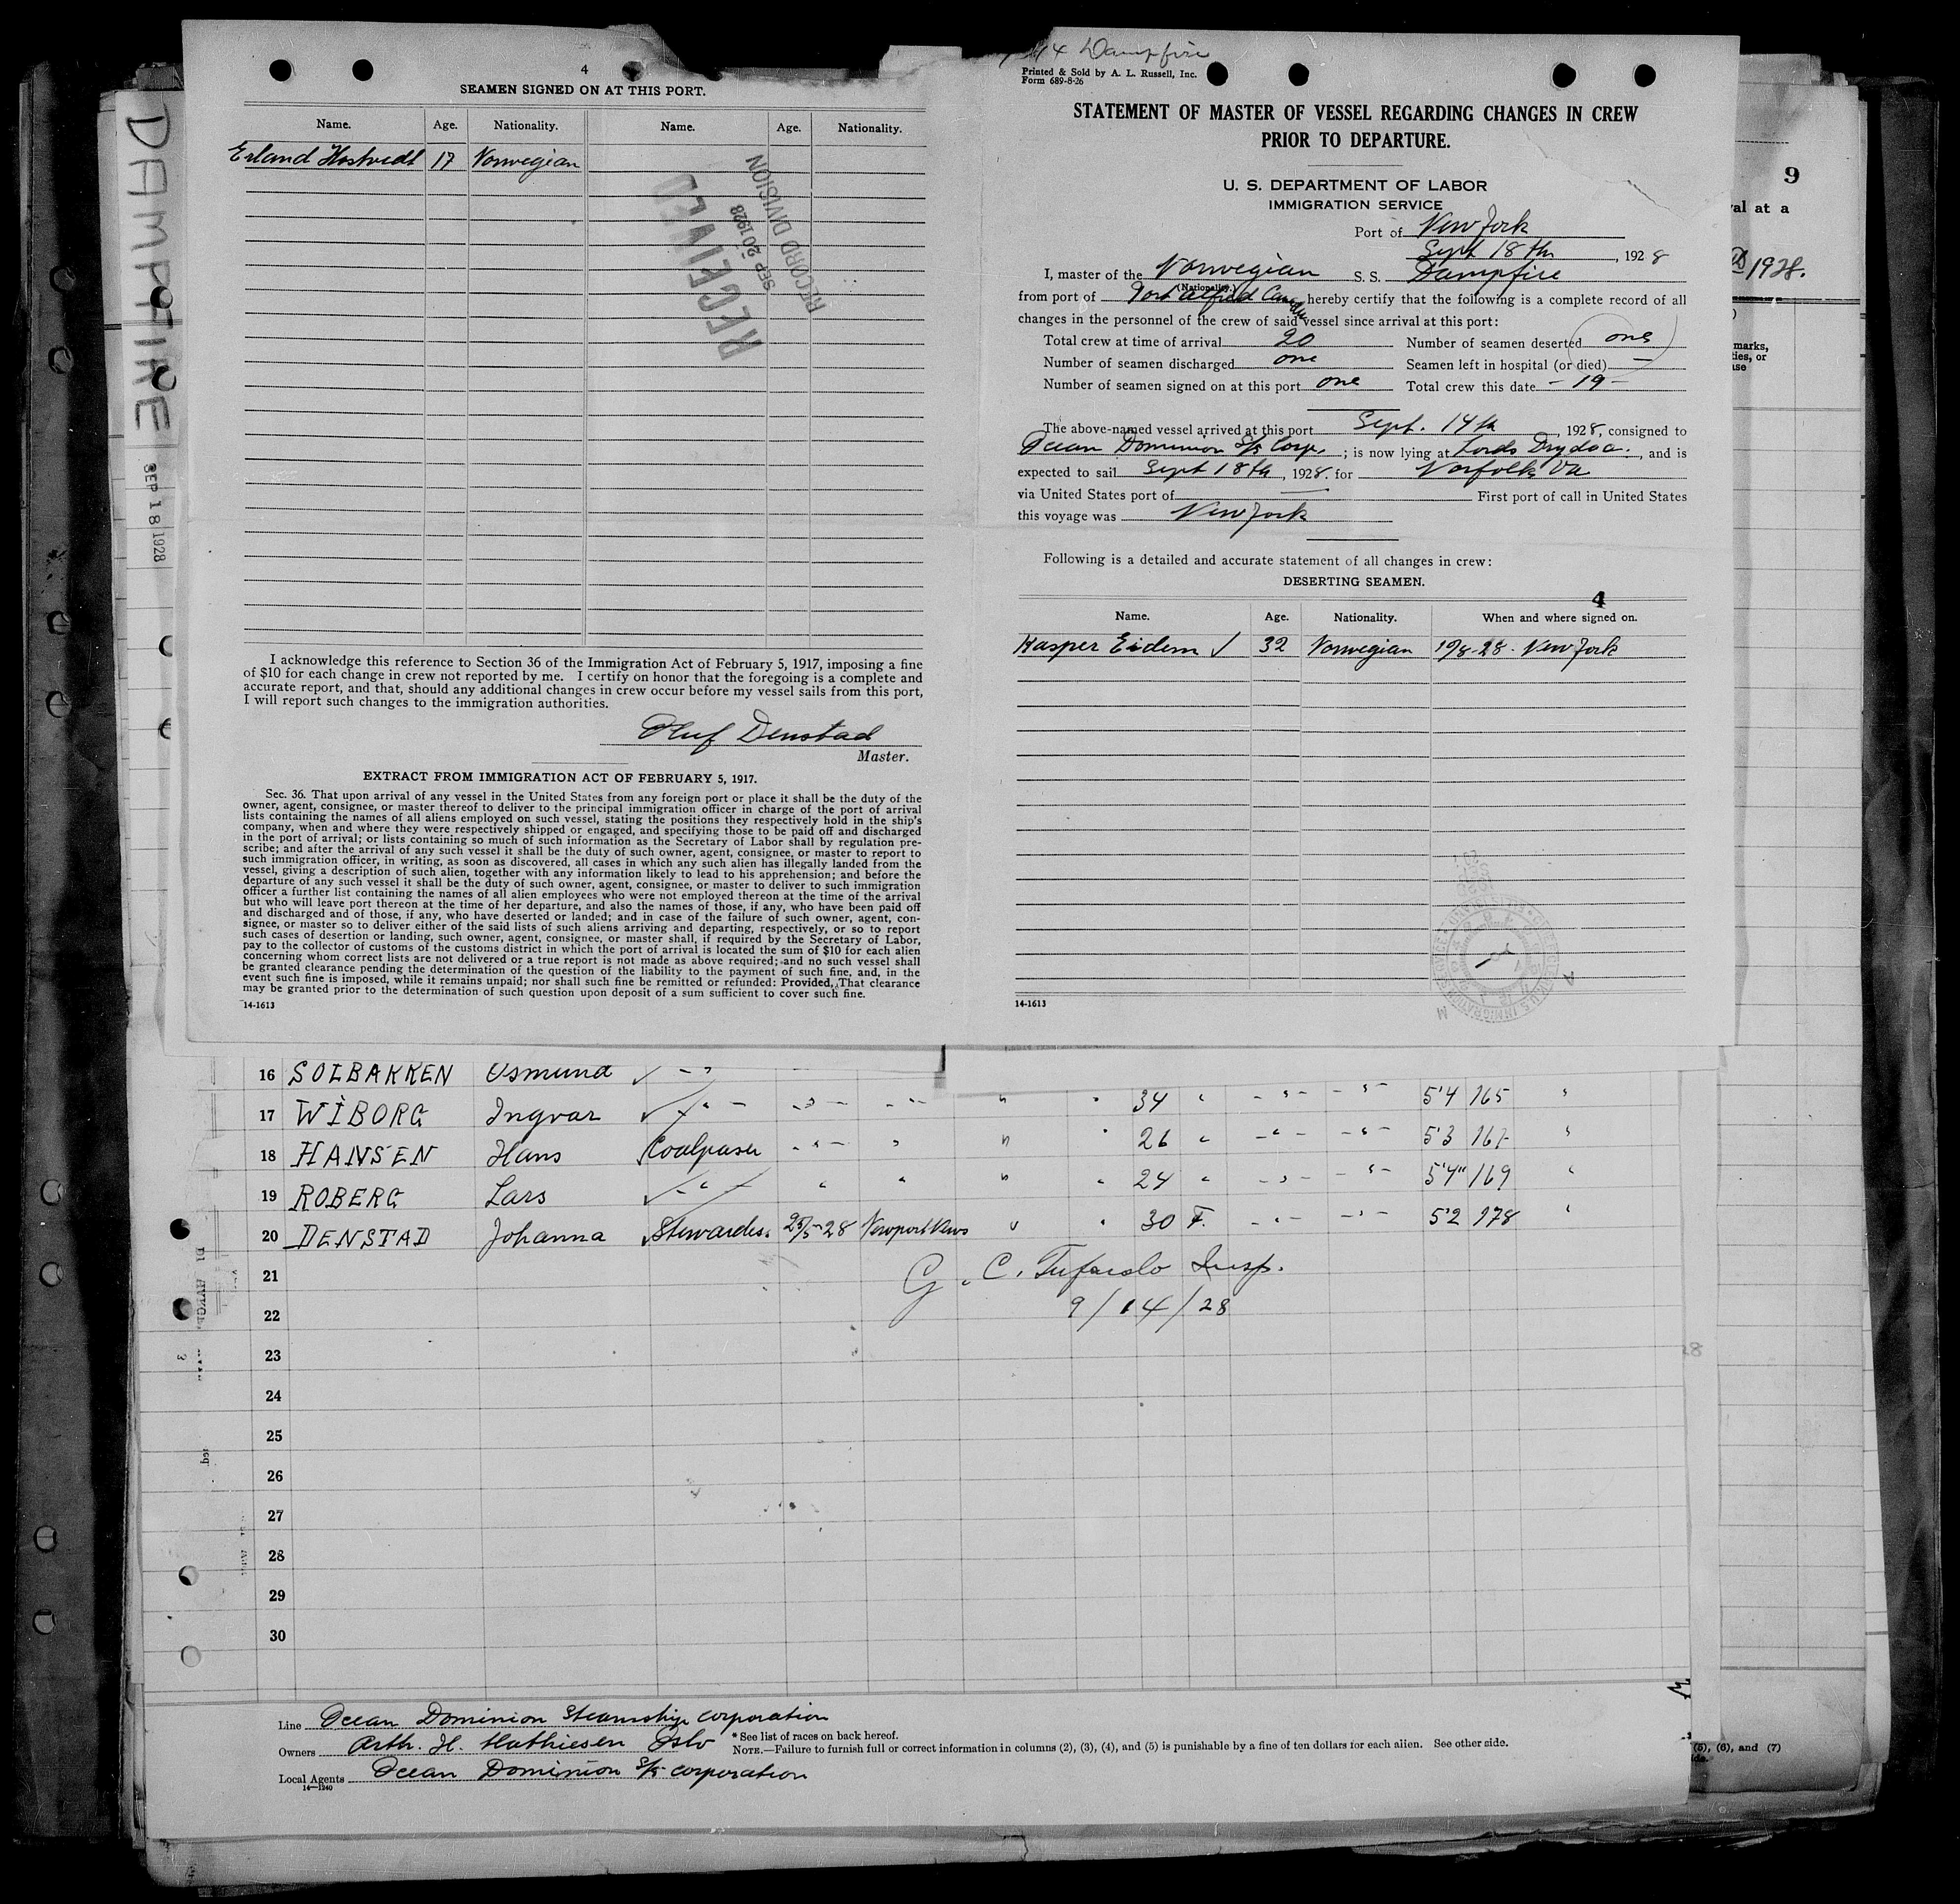 DAMPFIRE
SEP 18 1928
4
SEAMEN SIGNED ON AT THIS PORT.
Name. Age. Nationality. Name. Age. Nationality.
Erland Hostvedt 17 Norwegian
RECEIVED
SEP 20 1928
RECORD DIVISION
I acknowledge this reference to Section 36 of the Immigration Act of February 5, 1917, imposing a fine
of $10 for each change in crew not reported by me. I certify on honor that the foregoing is a complete and
accurate report, and that, should any additional changes in crew occur before my vessel sails from this port,
I will report such changes to the immigration authorities.
Oluf Denstad
Master.
EXTRACT FROM IMMIGRATION ACT OF FEBRUARY 5, 1917.
Sec. 36. That upon arrival of any vessel in the United States from any foreign port or place it shall be the duty of the
owner, agent, consignee, or master thereof to deliver to the principal immigration officer in charge of the port of arrival
lists containing the names of all aliens employed on such vessel, stating the positions they respectively hold in the ship's
company, when and where they were respectively shipped or engaged, and specifying those to be paid off and discharged
in the port of arrival; or lists containing so much of such information as the Secretary of Labor shall by regulation pre-
scribe; and after the arrival of any such vessel it shall be the duty of such owner, agent, consignee, or master to report to
such immigration officer, in writing, as soon as discovered, all cases in which any such alien has illegally landed from the
vessel, giving a description of such alien, together with any information likely to lead to his apprehension; and before the
departure of any such vessel it shall be the duty of such owner, agent, consignee, or master to deliver to such immigration
officer a further list containing the names of all alien employees who were not employed thereon at the time of the arrival
but who will leave port thereon at the time of her departure, and also the names of those, if any, who have been paid off
and discharged and of those, if any, who have deserted or landed; and in case of the failure of such owner, agent, con-
signee, or master so to deliver either of the said lists of such aliens arriving and departing, respectively, or so to report
such cases of desertion or landing, such owner, agent, consignee, or master shall, if required by the Secretary of Labor,
pay to the collector of customs of the customs district in which the port of arrival is located the sum of $10 for each alien
concerning whom correct lists are not delivered or a true report is not made as above required; and no such vessel shall
be granted clearance pending the determination of the question of the liability to the payment of such fine, and, in the
event such fine is imposed, while it remains unpaid; nor shall such fine be remitted or refunded: Provided, That clearance
may be granted prior to the determination of such question upon deposit of a sum sufficient to cover such fine.
14-1613
Dampfire
Printed & Sold by A. L. Russell, Inc.
Form 689-8-26
STATEMENT OF MASTER OF VESSEL REGARDING CHANGES IN CREW
PRIOR TO DEPARTURE.
U. S. DEPARTMENT OF LABOR
IMMIGRATION SERVICE
Port of New York
Sept 18th, 1928
I, master of the Norwegian S. S. Dampfire
(Nationality.)
from port of Port Alfred Canada hereby certify that the following is a complete record of all
changes in the personnel of the crew of said vessel since arrival at this port:
Total crew at time of arrival 20 Number of seamen deserted one
Number of seamen discharged one Seamen left in hospital (or died) —
Number of seamen signed on at this port one Total crew this date - 19 -
The above-named vessel arrived at this port Sept. 14th, 1928, consigned to
Ocean Dominion S/S Corp. ; is now lying at Lords Drydoc. , and is
expected to sail Sept 18th, 1928. for Norfolk Va
via United States port of — First port of call in United States
this voyage was New York
Following is a detailed and accurate statement of all changes in crew:
DESERTING SEAMEN.
4
Name. Age. Nationality. When and where signed on.
Kasper Eidem ✓ 32 Norwegian 10/8-28 - New York
14-1613
9
val at a
1928.
marks,
ties, or
use
16 SOLBAKKEN Osmund ✓ - " -
17 WIBORG Ingvar ✓ - " - - " - - " - " " 34 " - " - - " - 5'4 165 "
18 HANSEN Hans Coalpaser - " - " " " 26 " - " - - " - 5'3 167 "
19 ROBERG Lars ✓ - " - " " " " 24 " - " - - " - 5'4" 169 "
20 DENSTAD Johanna ✓ Stewardes. 25/5-28 Newport News " " 30 F. - " - - " - 5'2 178 "
21
G. C. Tufarolo Insp.
22
9/14/28
23
24
25
26
27
28
29
30
Line Ocean Dominion Steamship Corporation
Owners Arth. H. Mathiesen Oslo
* See list of races on back hereof.
NOTE.—Failure to furnish full or correct information in columns (2), (3), (4), and (5) is punishable by a fine of ten dollars for each alien. See other side.
Local Agents Ocean Dominion S/S Corporation
14—1240
(5), (6), and (7)